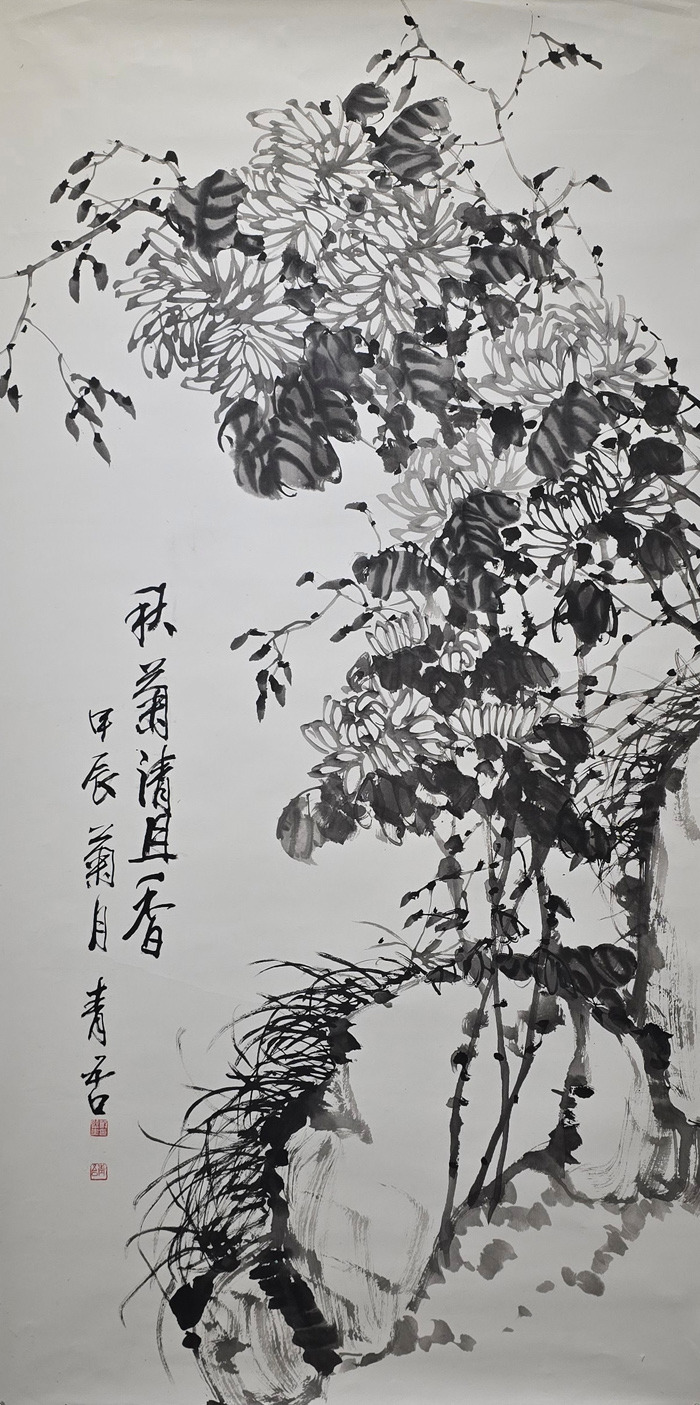 秋菊清且香
甲辰菊月青